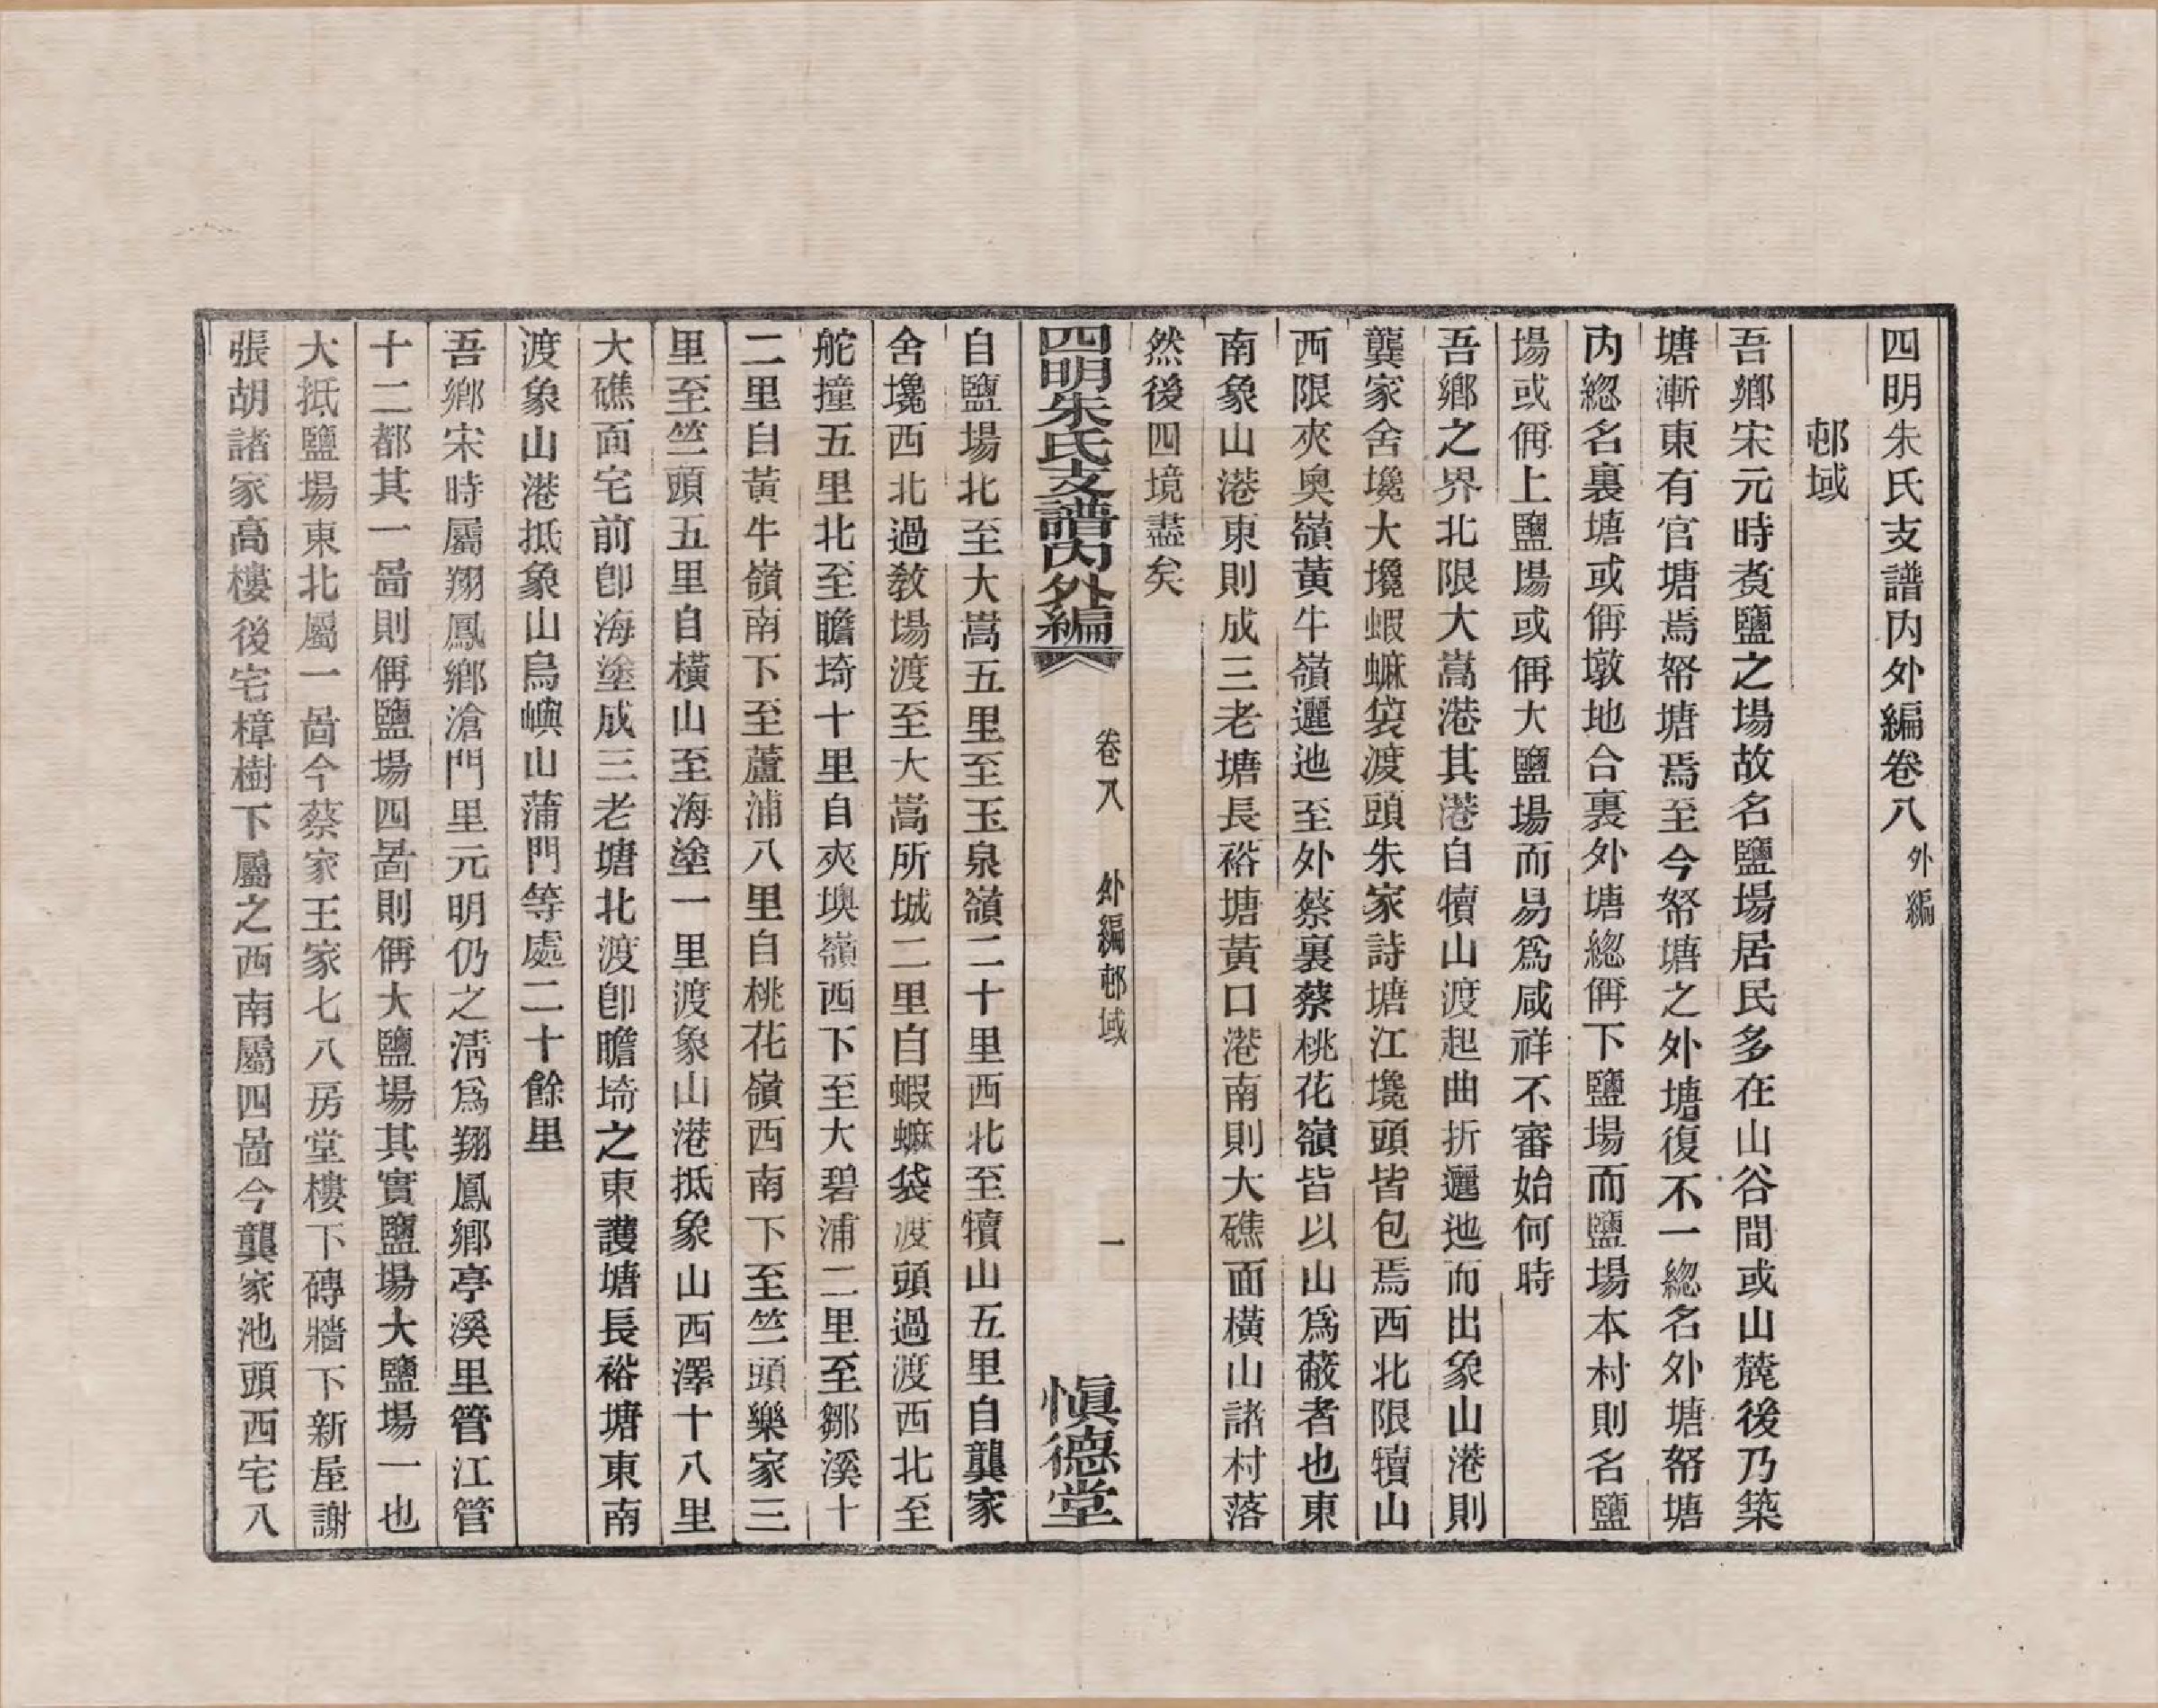 四明朱氏支譜內外編卷八外編
邨域
吾鄉宋元時煑鹽之場故名鹽場居民多在山谷間或山麓後乃築
塘漸東有官塘焉帑塘焉至今帑塘之外塘復不一總名外塘帑塘
內總名裏塘或偁墩地合裏外塘總偁下鹽場而鹽場本村則名鹽
場或偁上鹽場或偁大鹽場而易爲咸祥不審始何時
吾鄉之界北限大嵩港其港自犢山渡起曲折邐迤而出象山港則
龔家舍堍大堍蝦蟆袋渡頭朱家詩塘江堍頭皆包焉西北限犢山
西限夾奧嶺黃牛嶺邐迤至外蔡裏蔡桃花嶺皆以山爲蔽者也東
南象山港東則成三老塘長裕塘黃口港南則大礁面橫山諸村落
然後四境盡矣
四明朱氏支譜內外編 卷八 外編邨域 一 愼德堂
自鹽場北至大嵩五里至玉泉嶺二十里西北至犢山五里自龔家
舍堍西北過教場渡至大嵩所城二里自蝦蟆袋渡頭過渡西北至
舵撞五里北至瞻埼十里自夾墺嶺西下至大碧浦二里至鄒溪十
二里自黃牛嶺南下至蘆浦八里自桃花嶺西南下至竺頭樂家三
里至竺頭五里自橫山至海塗一里渡象山港抵象山西澤十八里
大礁面宅前卽海塗成三老塘北渡卽瞻埼之東護塘長裕塘東南
渡象山港抵象山烏嶼山蒲門等處二十餘里
吾鄉宋時屬翔鳳鄉滄門里元明仍之淸爲翔鳳鄉亭溪里管江管
十二都其一啚則偁鹽場四啚則偁大鹽場其實鹽場大鹽場一也
大抵鹽場東北屬一啚今蔡家王家七八房堂樓下磚牆下新屋謝
張胡諸家高樓後宅樟樹下屬之西南屬四啚今龔家池頭西宅八